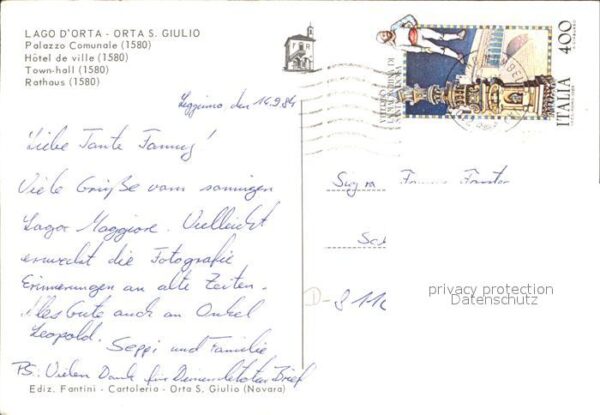 LAGO D'ORTA - ORTA S. GIULIO
Palazzo Comunale (1580)
Hôtel de ville (1580)
Town-hall (1580)
Rathaus (1580)
den 16.9.84
Liebe Tante Fanny!
Viele Grüße vom sonnigen
Lago Maggiore. Vielleicht
erweckt die Fotografie
Erinnerungen an alte Zeiten.
Alles Gute auch an Onkel
Leopold.
Seppi und Familie
PS. Vielen Dank für Deinen letzten Brief
Ediz. Fantini - Cartoleria - Orta S. Giulio (Novara)
ITALIA 400
Sig.ra
D-811
privacy protection
Datenschutz